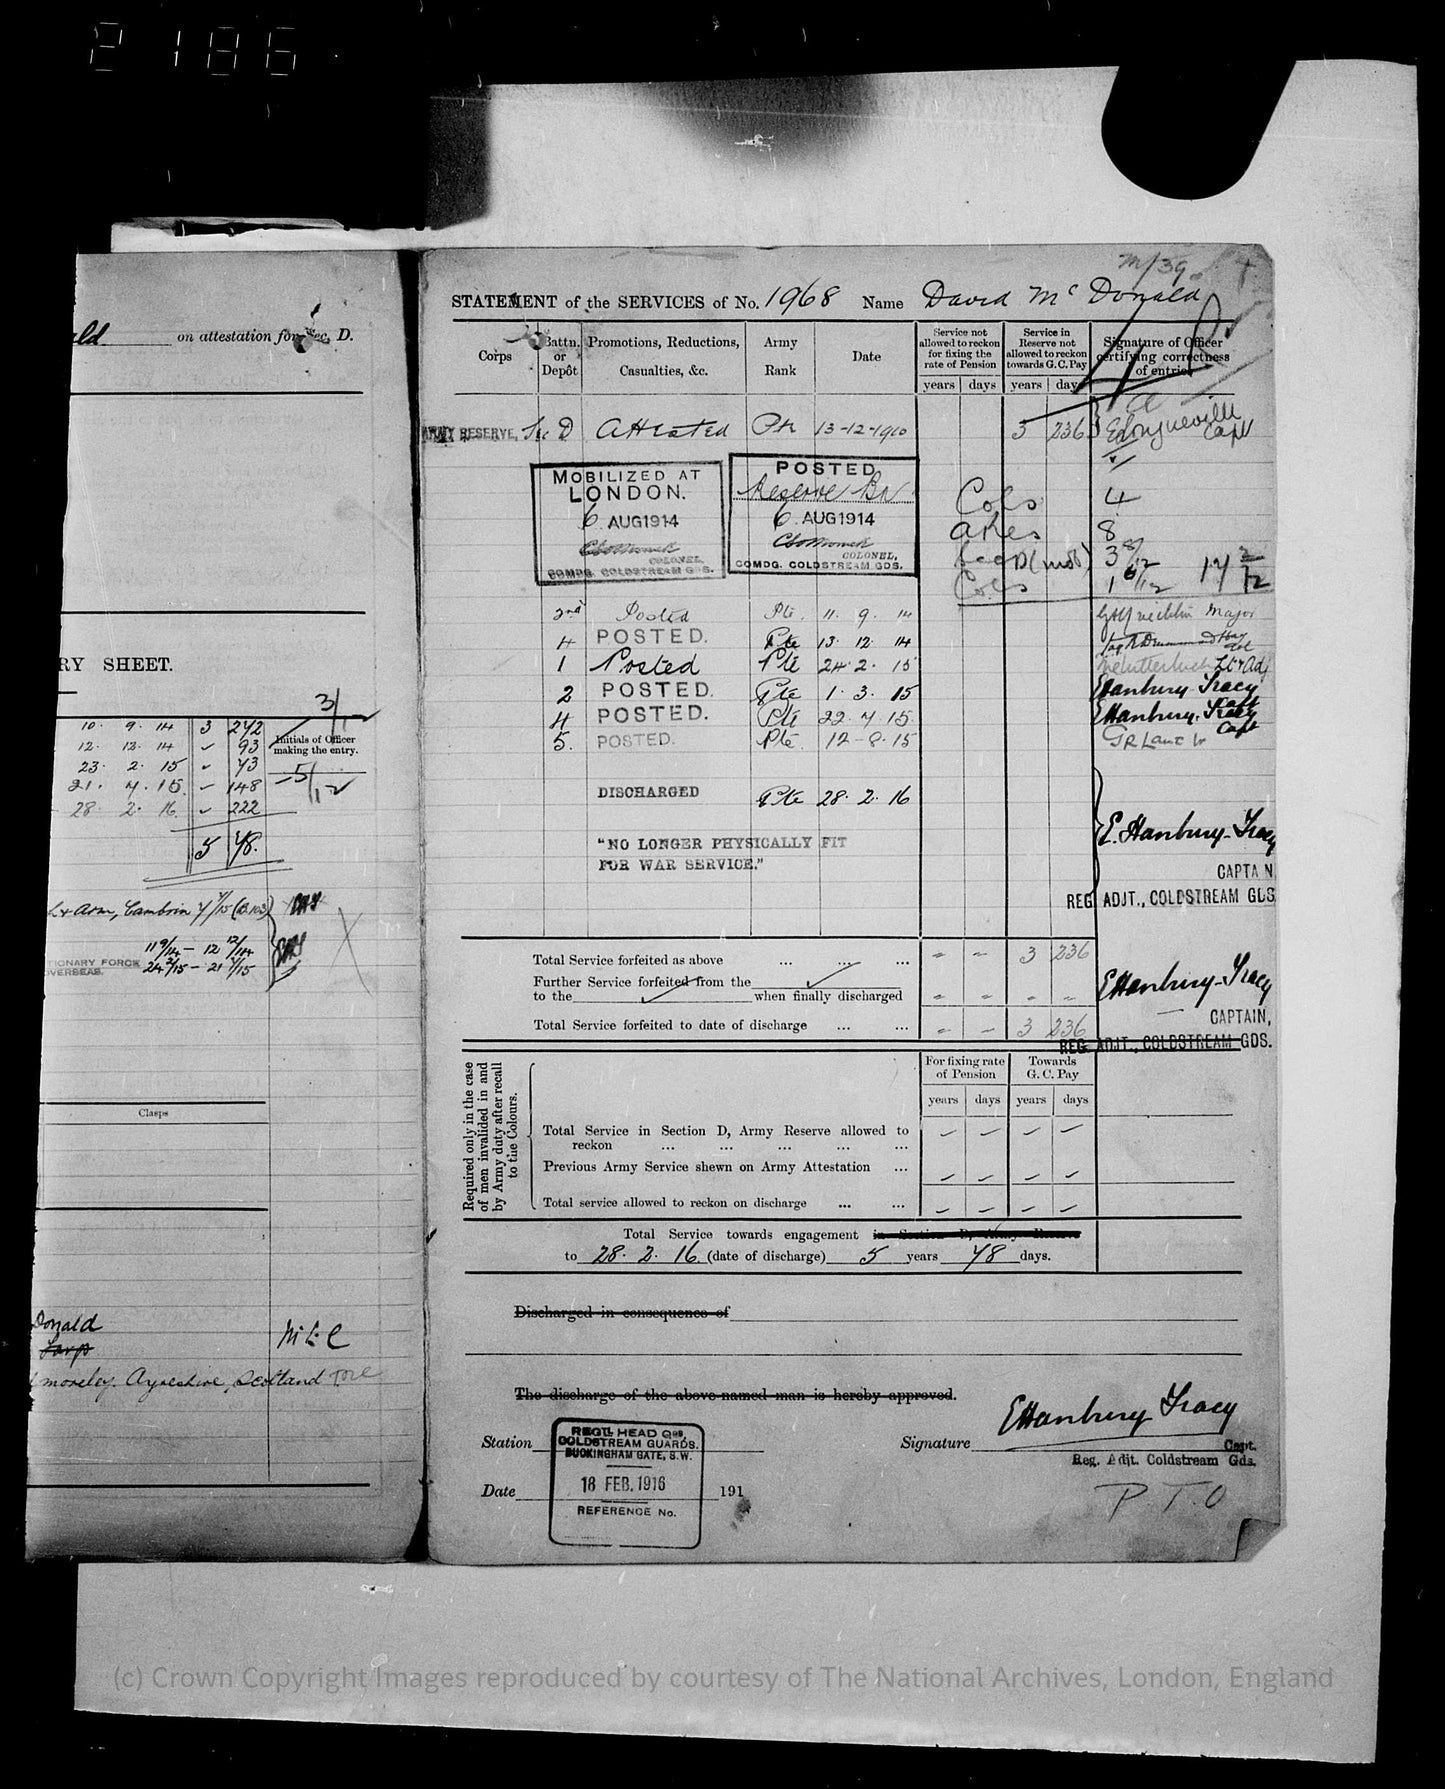 2186
ald on attestation for Sec. D.
RY SHEET.
3/
Initials of Officer
making the entry.
10. 9. 14 3 242
12. 12. 14 93
23. 2. 15 73
21. 7. 15 148
28. 2. 16 222
5 48.
Arm, Cambrin
TIONARY FORCE
OVERSEAS.
Clasps
Donald
Ayreshire, Scotland
M/39
STATEMENT of the SERVICES of No. 1968 Name David McDonald
Corps
Battn. or Depôt
Promotions, Reductions, Casualties, &c.
Army Rank
Date
Service not allowed to reckon for fixing the rate of Pension
years days
Service in Reserve not allowed to reckon towards G. C. Pay
years days
Signature of Officer certifying correctness of entries
ARMY RESERVE, Sec D Attested Pte 13-12-1910 3 236 Longueville Capt
MOBILIZED AT
LONDON.
6 AUG 1914
COLONEL,
COMDG. COLDSTREAM GDS.
POSTED
Reserve Bn
6 AUG 1914
COLONEL,
COMDG. COLDSTREAM GDS.
Cols 4
Ares 8
Sec D (mob) 3 8/12
Cols 1 6/12
2nd Posted Pte. 11. 9. 14 Major
4 POSTED. Pte 13. 12. 14
1 Posted Pte 24. 2. 15 Lt & Adj
2 POSTED. Pte 1. 3. 15 EHanbury-Tracy Capt
4 POSTED. Pte 22. 7. 15. EHanbury-Tracy Capt
5. POSTED. Pte 12-8-15
DISCHARGED Pte 28. 2. 16
"NO LONGER PHYSICALLY FIT
FOR WAR SERVICE."
E. Hanbury-Tracy
CAPTAIN
REG. ADJT., COLDSTREAM GDS
Total Service forfeited as above ... ... ... 3 236
Further Service forfeited from the
to the when finally discharged
Total Service forfeited to date of discharge ... ... 3 236
EHanbury-Tracy
CAPTAIN,
REG. ADJT., COLDSTREAM GDS.
Required only in the case of men invalided in and by Army duty after recall to the Colours.
For fixing rate of Pension
Towards G. C. Pay
years days years days
Total Service in Section D, Army Reserve allowed to
reckon ... ... ... ... ...
Previous Army Service shewn on Army Attestation ...
Total service allowed to reckon on discharge ... ...
Total Service towards engagement in Section D, Army Reserve
to 28. 2. 16 (date of discharge) 5 years 78 days.
Discharged in consequence of
The discharge of the above-named man is hereby approved.
Station
REGTL HEAD QRS.
COLDSTREAM GUARDS.
BUCKINGHAM GATE, S.W.
18 FEB. 1916
REFERENCE No.
Signature EHanbury Tracy
Capt.
Reg. Adjt. Coldstream Gds.
Date 191
P.T.O
(c) Crown Copyright Images reproduced by courtesy of The National Archives, London, England